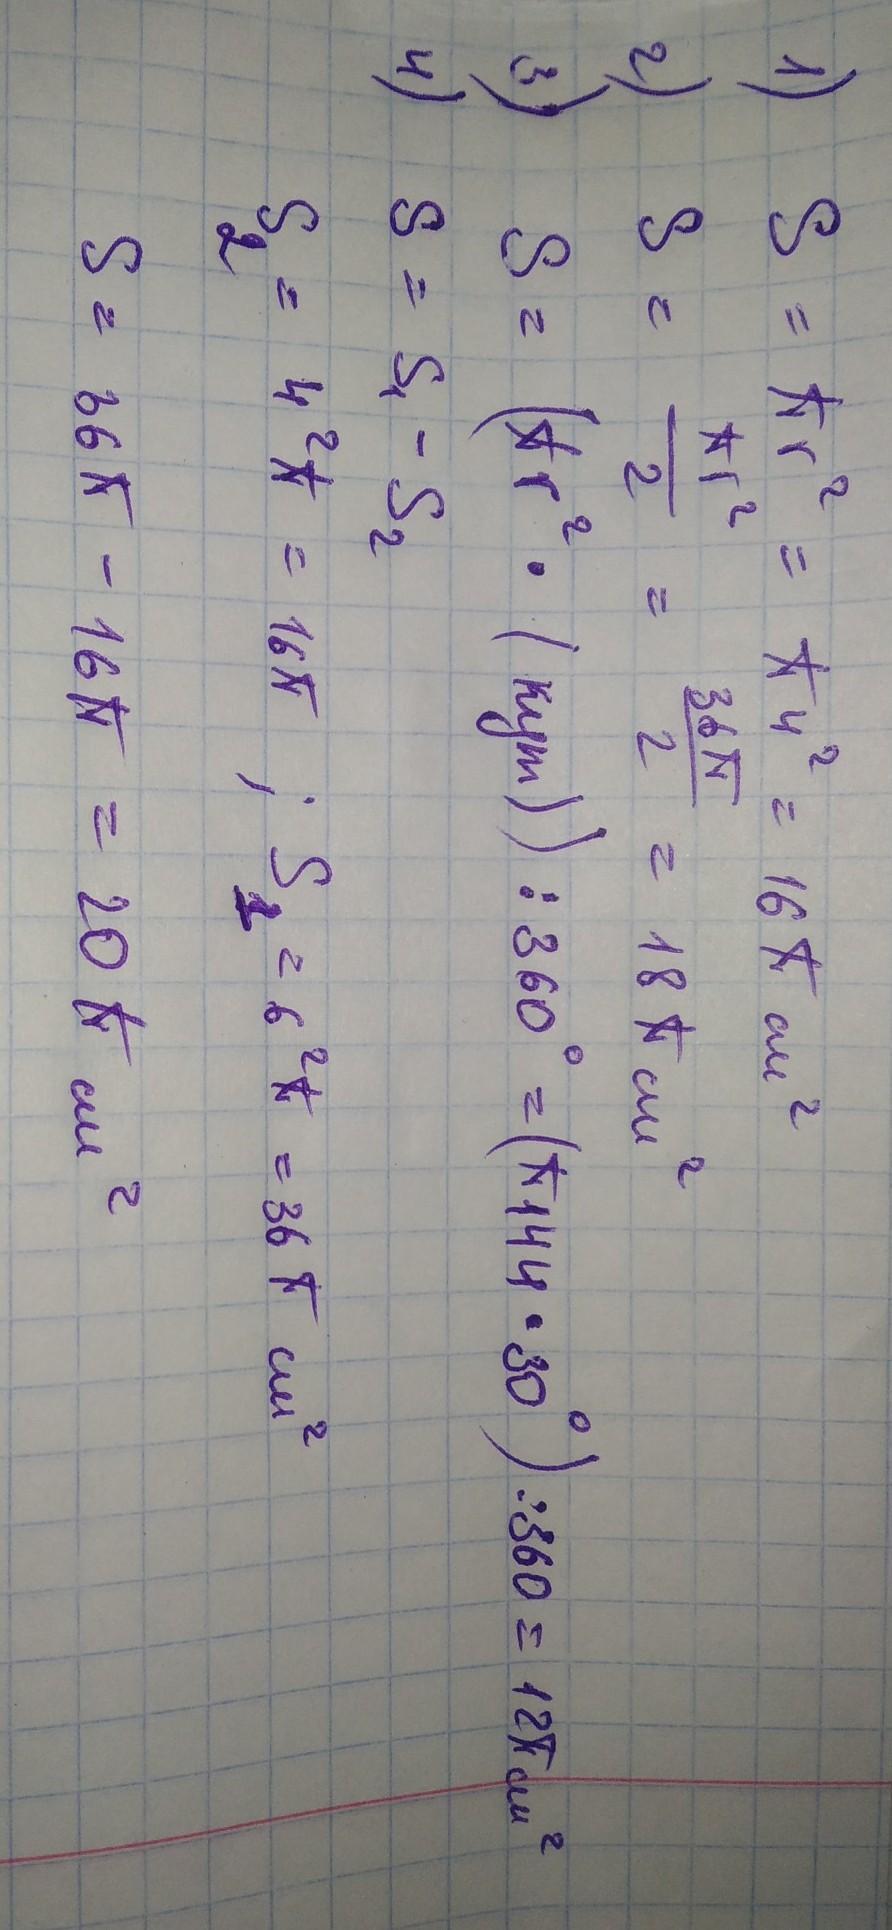 1) S = πr² = π4² = 16π см²
2) S = πr²/2 = 36π/2 = 18π см²
3) S = (πr² · (кут)) : 360° = (π144 · 30°) : 360 = 12π см²
4) S = S₁ - S₂
S₂ = 4²π = 16π ; S₁ = 6²π = 36π см²
S = 36π - 16π = 20π см²